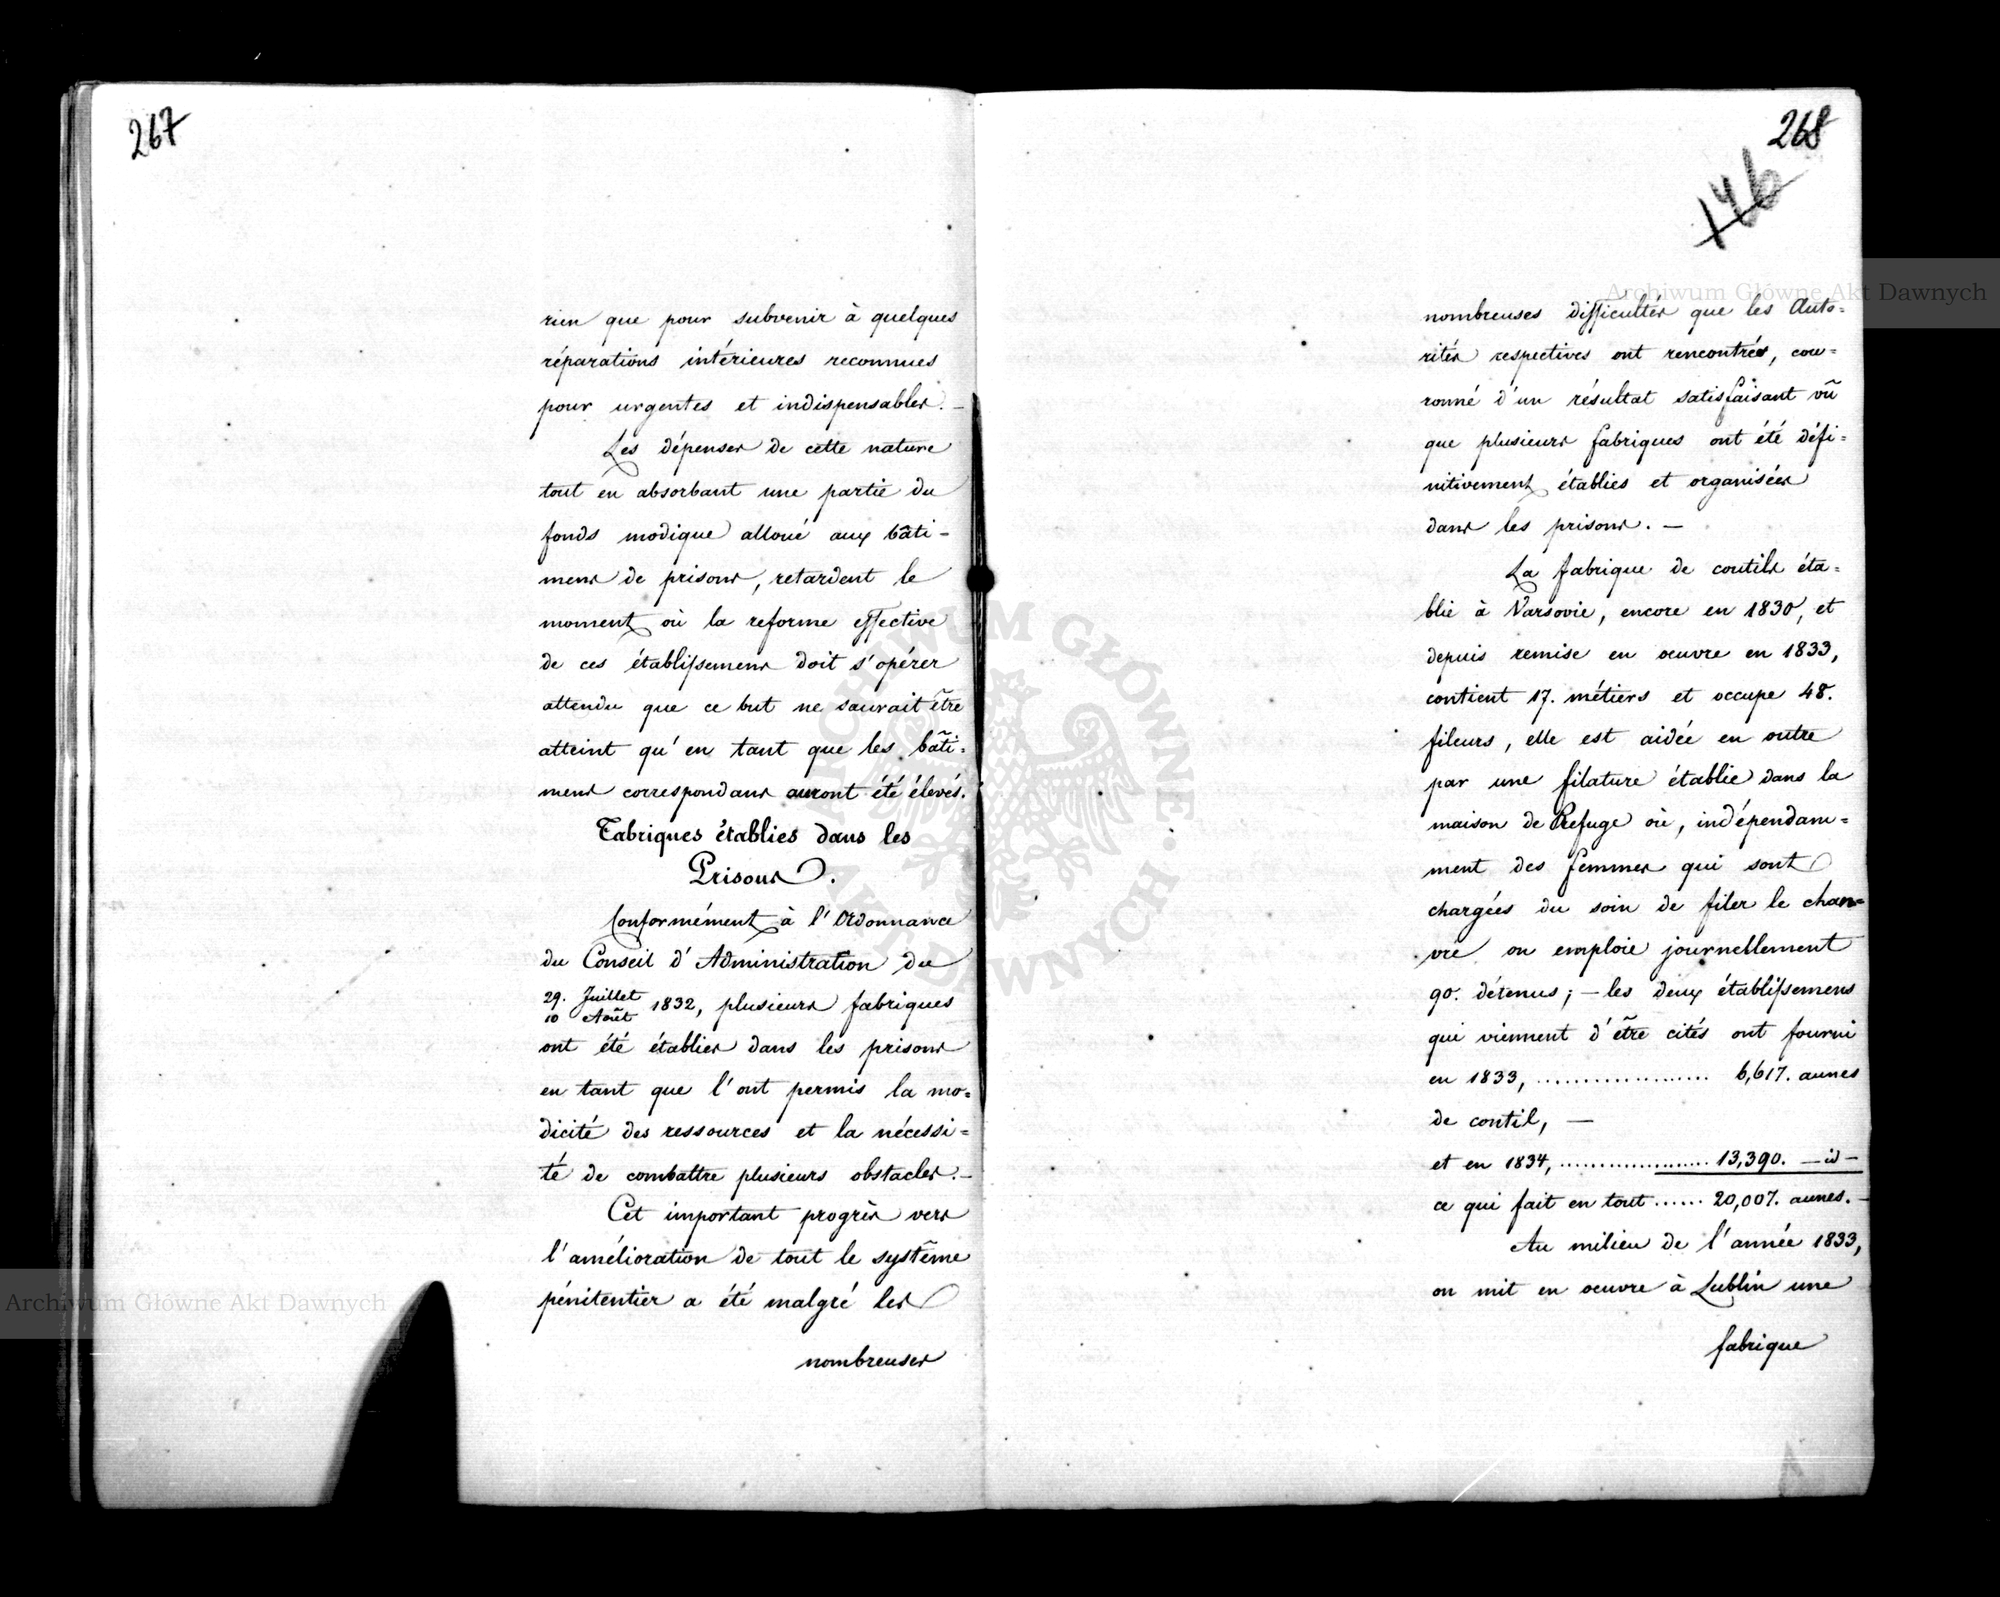 267
rien que pour subvenir à quelques
réparations intérieures reconnues
pour urgentes et indispensables. —
Les dépenses de cette nature
tout en absorbant une partie du
fonds modique alloué aux bâti-
mens de prisons, retardent le
moment où la reforme effective
de ces établissemens doit s'opérer
attendu que ce but ne saurait être
atteint qu'en tant que les bâti-
mens correspondans auront été élevés.
Fabriques établies dans les
Prisons.
Conformément à l'Ordonnance
du Conseil d'Administration du
29. Juillet
10 Août 1832, plusieurs fabriques
ont été établies dans les prisons
en tant que l'ont permis la mo=
dicité des ressources et la nécessi=
té de combattre plusieurs obstacles. —
Cet important progrès vers
l'amélioration de tout le système
pénitentier a été malgré les
nombreuses
268
146
nombreuses difficultés que les Auto=
rités respectives ont rencontrés, cou=
ronné d'un résultat satisfaisant vû
que plusieurs fabriques ont été défi=
nitivement établies et organisées
dans les prisons. —
La fabrique de coutils éta=
blie à Varsovie, encore en 1830, et
depuis remise en oeuvre en 1833,
contient 17. métiers et occupe 48.
fileurs, elle est aidée en outre
par une filature établie dans la
maison de Refuge où, indépendam=
ment des femmes qui sont
chargées du soin de filer le chan=
vre on emploie journellement
90. détenus; — les deux établissemens
qui viennent d'être cités ont fourni
en 1833, .................. 6,617. aunes
de coutil, —
et en 1834, .................. 13,390. — id —
ce qui fait en tout ...... 20,007. aunes. —
Au milieu de l'année 1833,
on mit en oeuvre à Lublin une
fabrique
Archiwum Główne Akt Dawnych
Archiwum Główne Akt Dawnych
ARCHIWUM GŁÓWNE AKT DAWNYCH